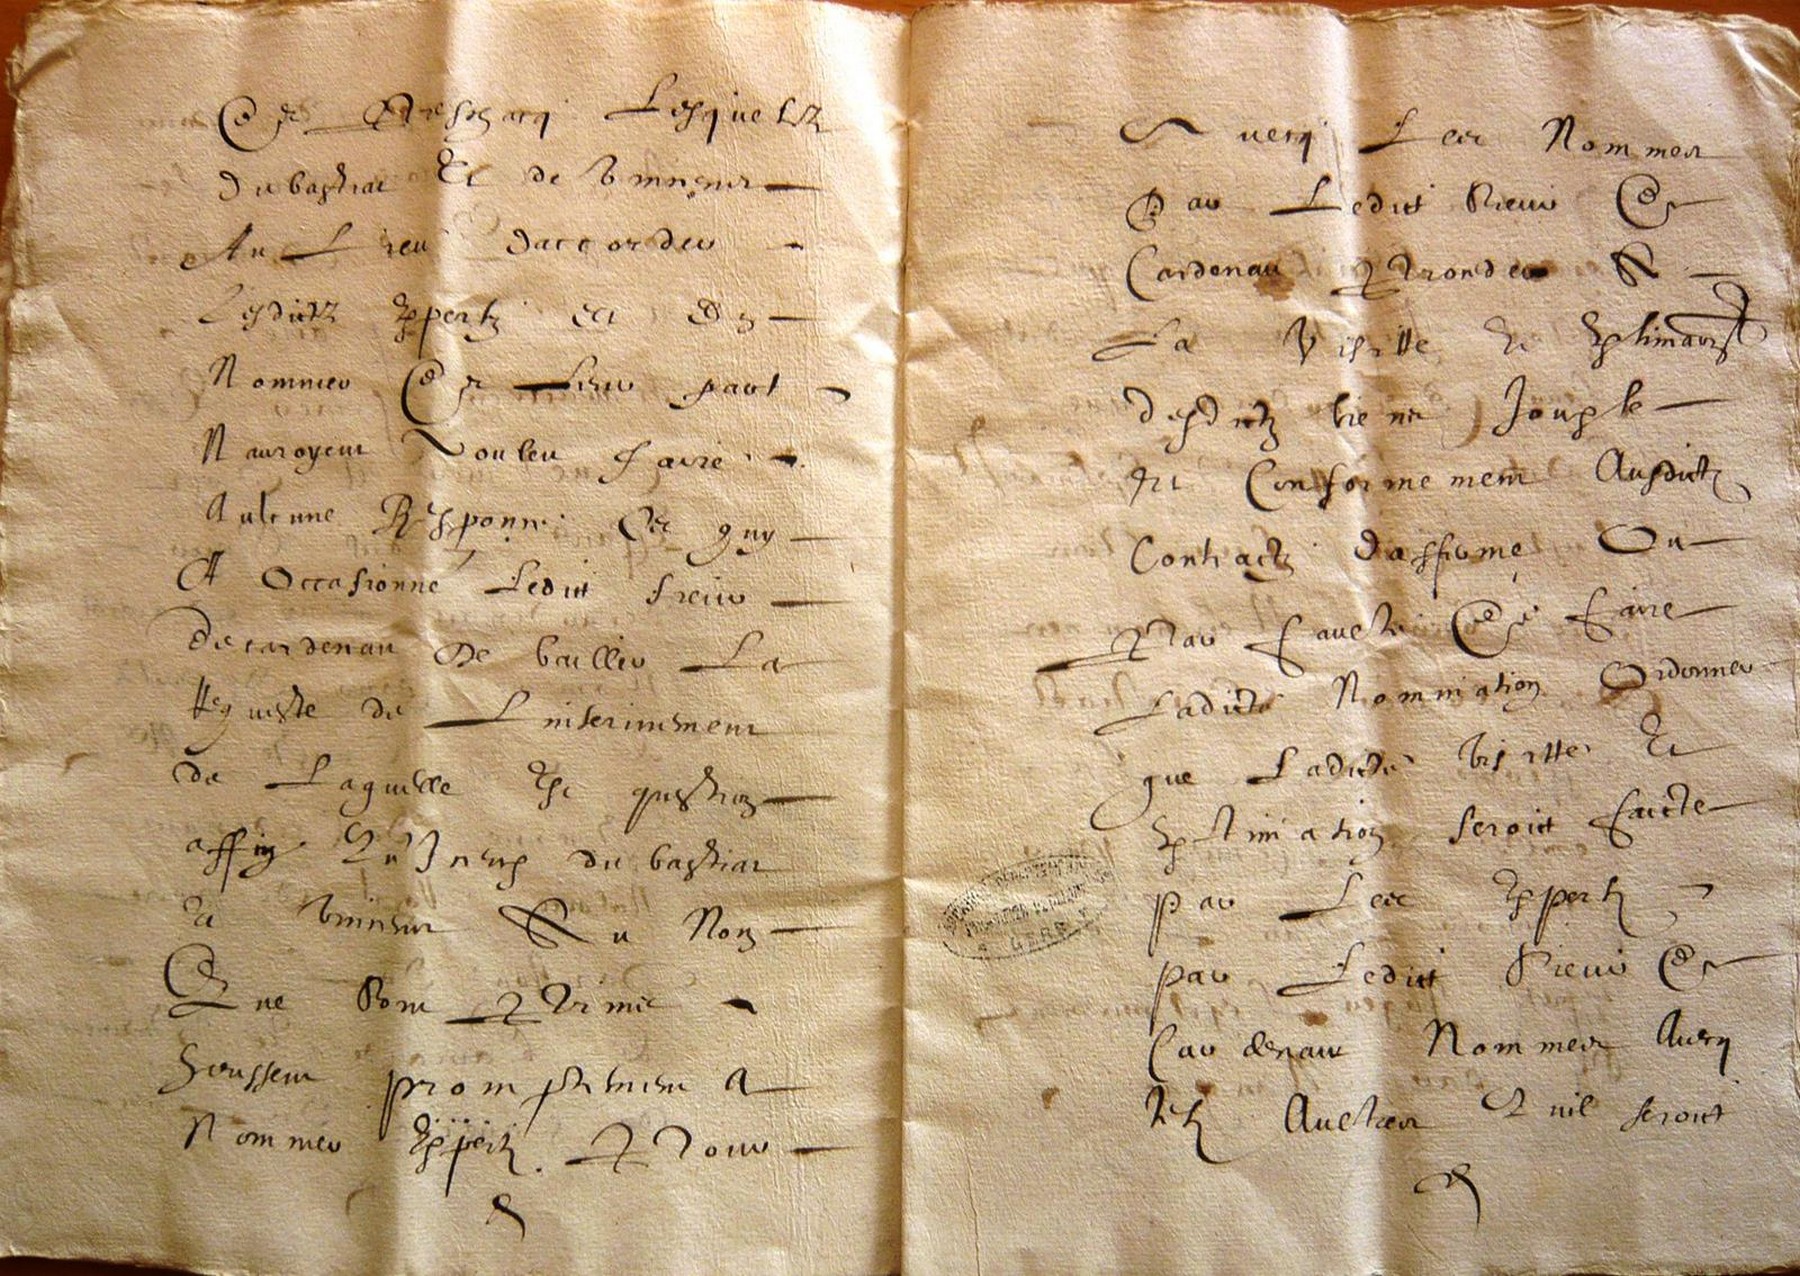 De Preschacq Lesquelz
Dubastiar Et de
Au Lieu daccorder
Lesditz Expertz et En
Nommer De Leur part
Nauroyent Voulleu faire
Aulcune Responce Ce quy
A Occasionné Ledict sieur
Decardenau De bailler La
Requeste de Linterinement
de Laquelle Est question
affin du bastiar
et Ou Non
Que Pour
Heussent promptement A
Nommer Expertz Pour
Avecq Les Nommes
Par Ledict Sieur De
Cardenau Proceder A
La Visitte Et Estimation
desditz biens Jouxte
Et Conformement Ausditz
Contractz Daffirme Ou
Par Faulte De Faire
Ladicte Nomination Ordonner
que Ladicte Visitte Et
Estimation seroict Faicte
par Les Expertz
par Ledict Sieur De
Cardenau Nommes Avecq
telz Aultres Quil seroict
GERS